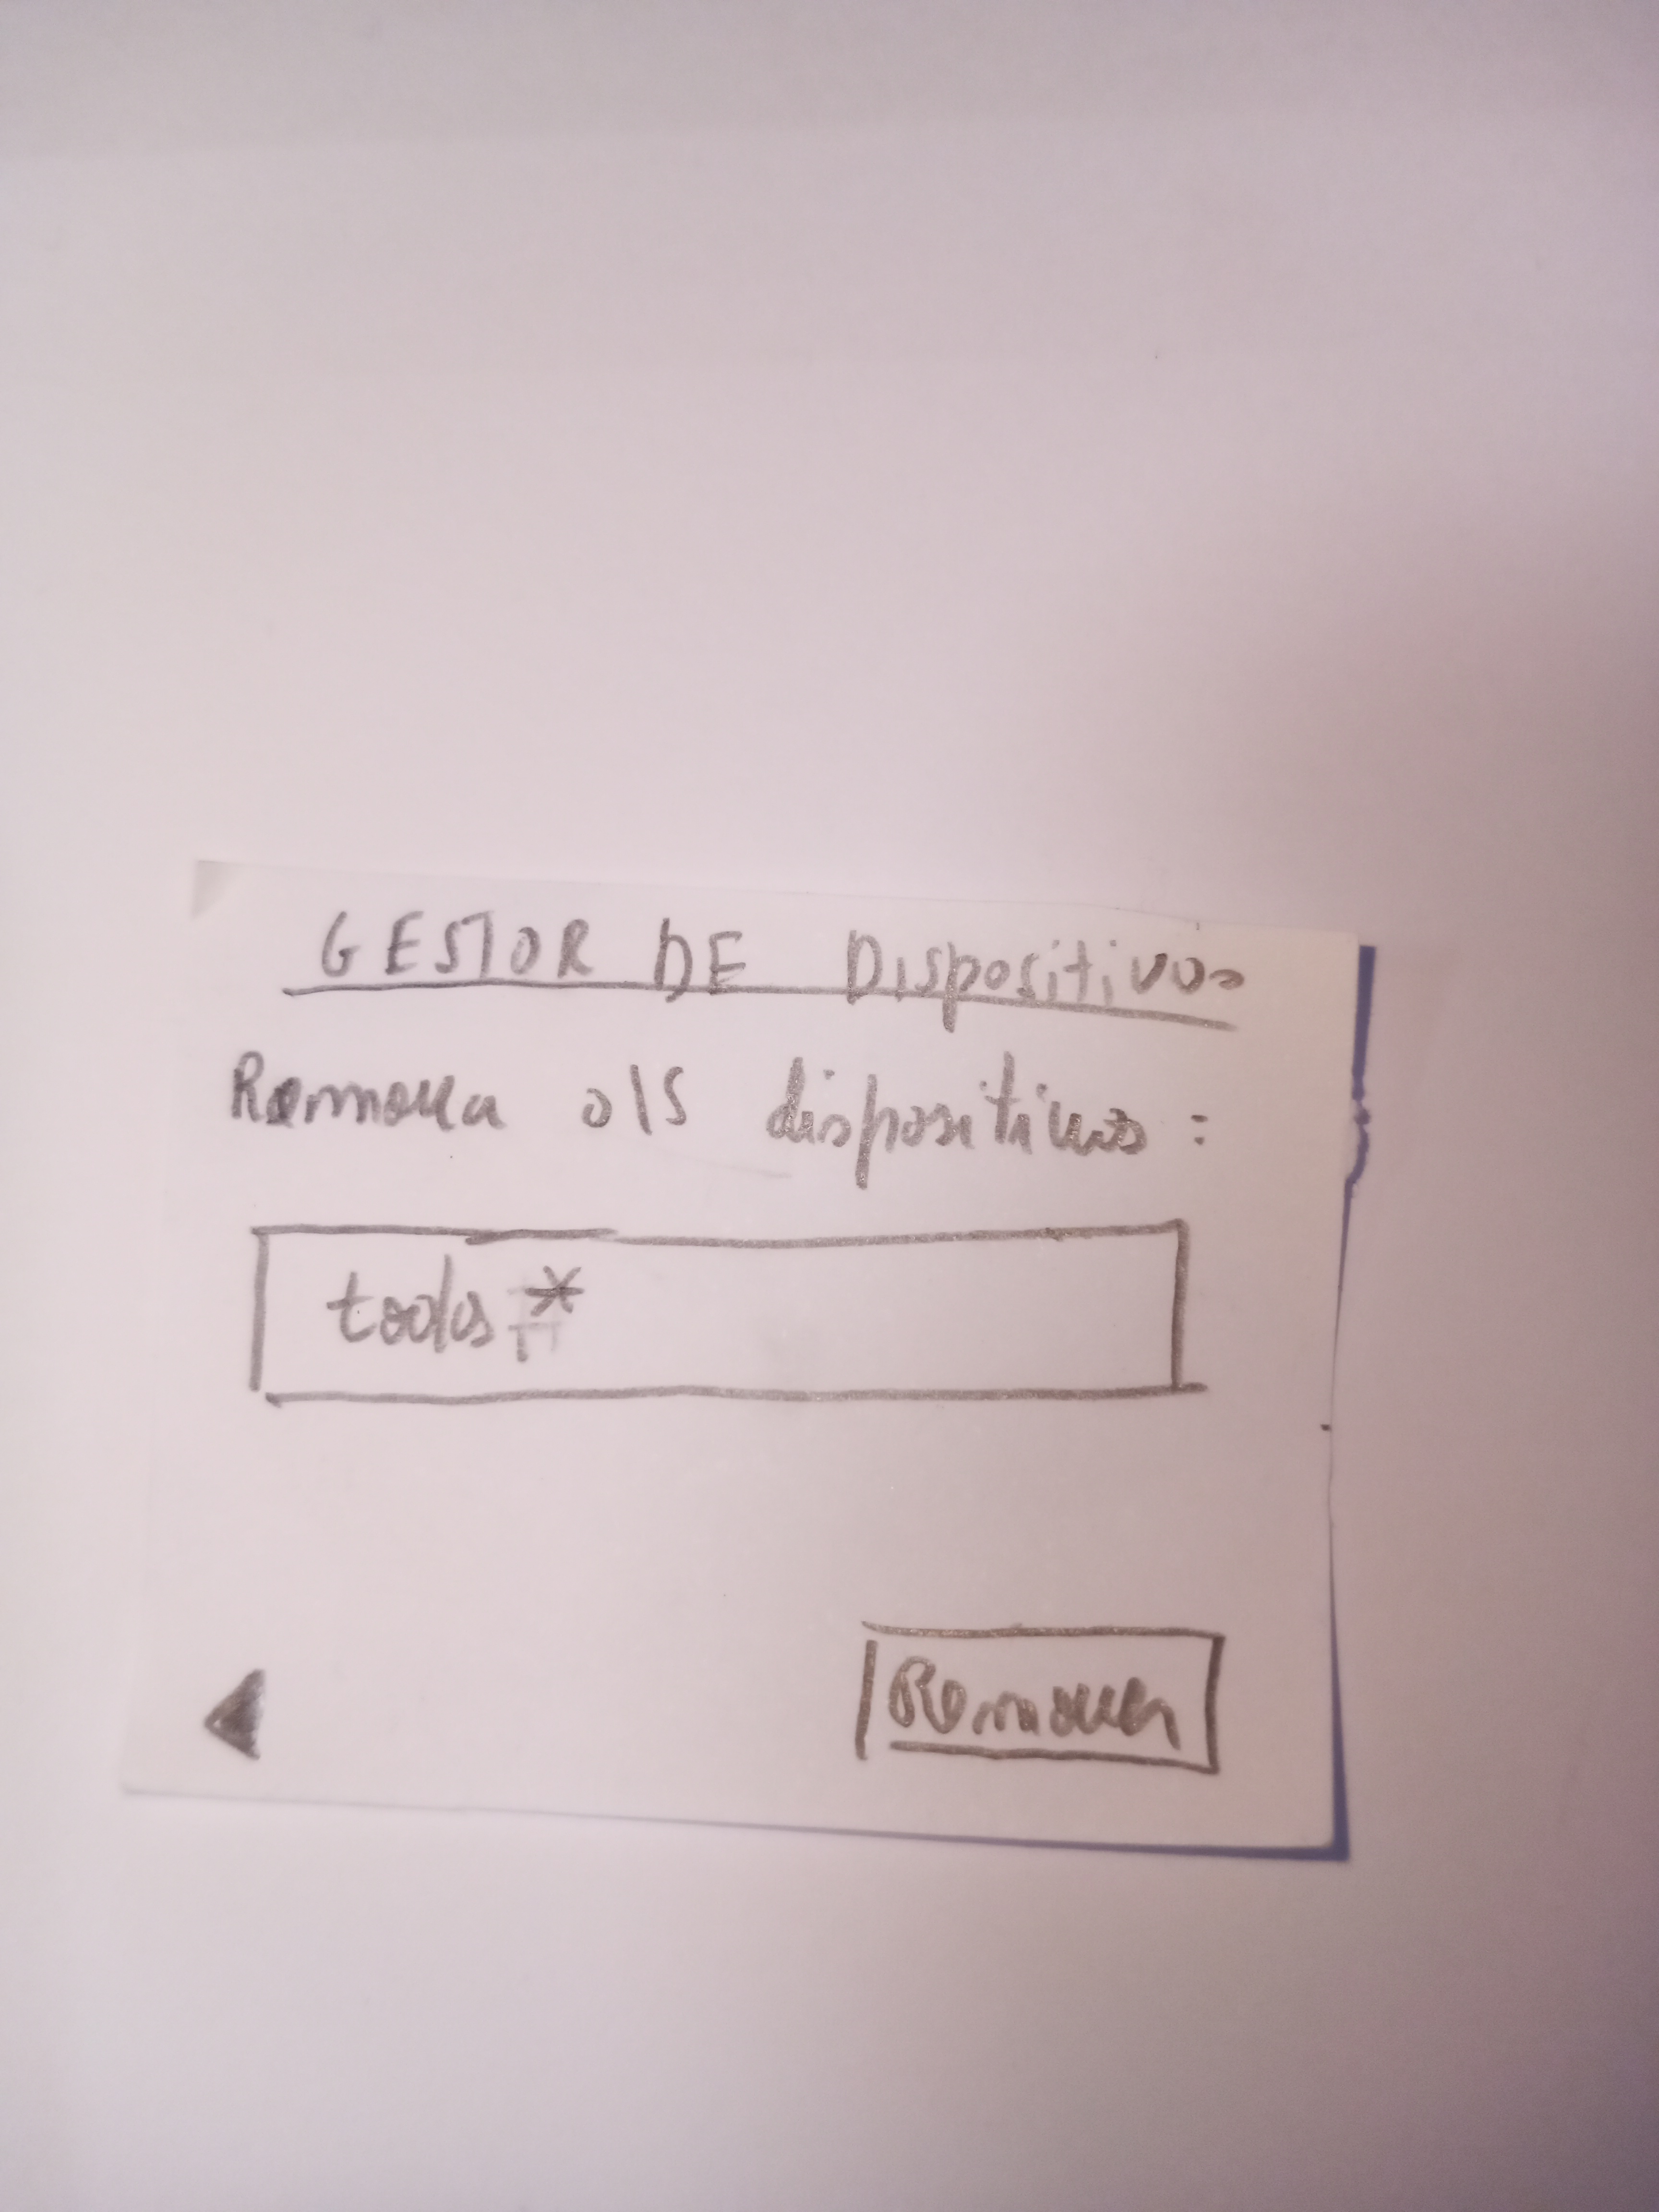 GESTOR DE Dispositivos
Remova o/s dispositivos :
todos *
Remover